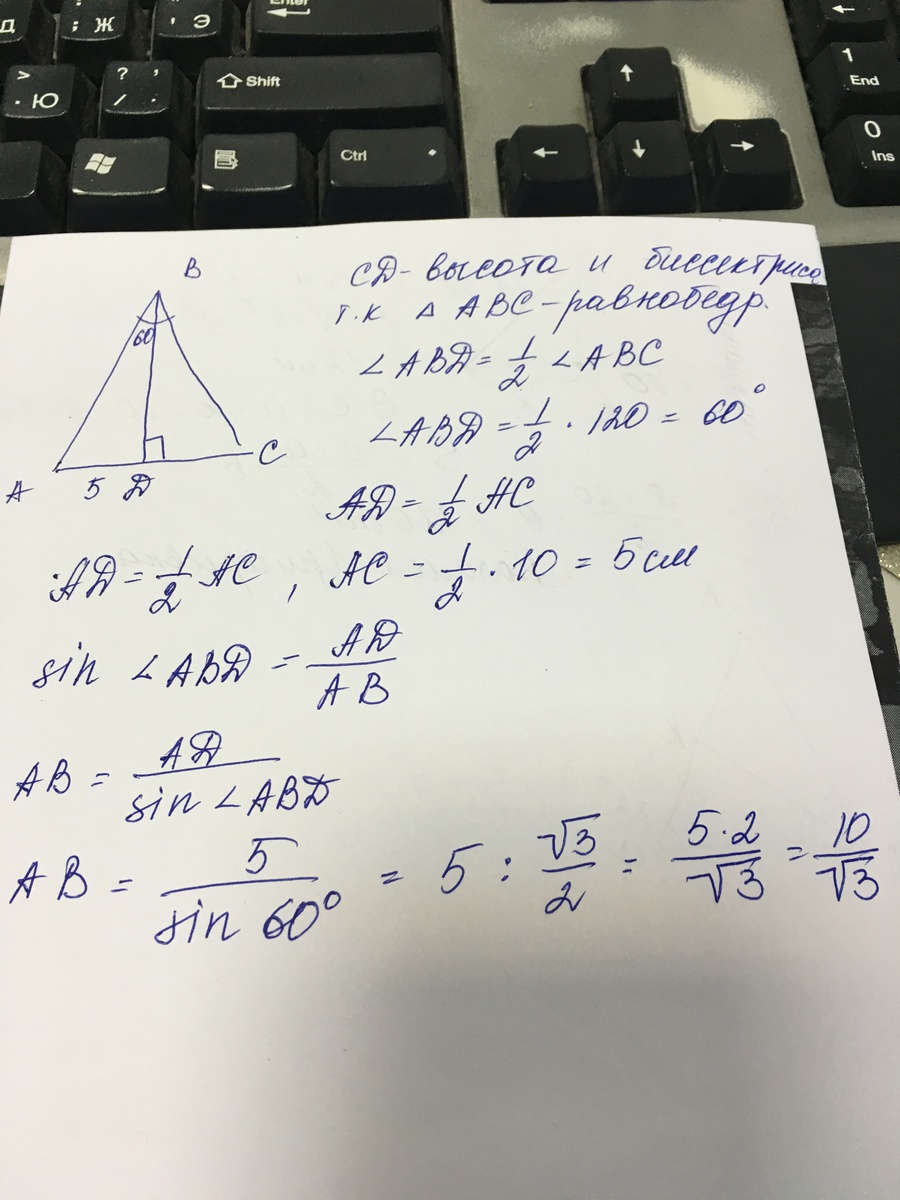 Enter
Д ; Ж ' Э
> . Ю ? , / . Shift
Ctrl
1 End
0 Ins
B
60
A 5 D C
CD - высота и биссектриса
т.к △ ABC - равнобедр.
∠ABD = 1/2 ∠ABC
∠ABD = 1/2 · 120 = 60°
AD = 1/2 AC
AD = 1/2 AC , AC = 1/2 · 10 = 5 см
sin ∠ABD = AD/AB
AB = AD/sin ∠ABD
AB = 5/sin 60° = 5 : √3/2 = 5·2/√3 = 10/√3